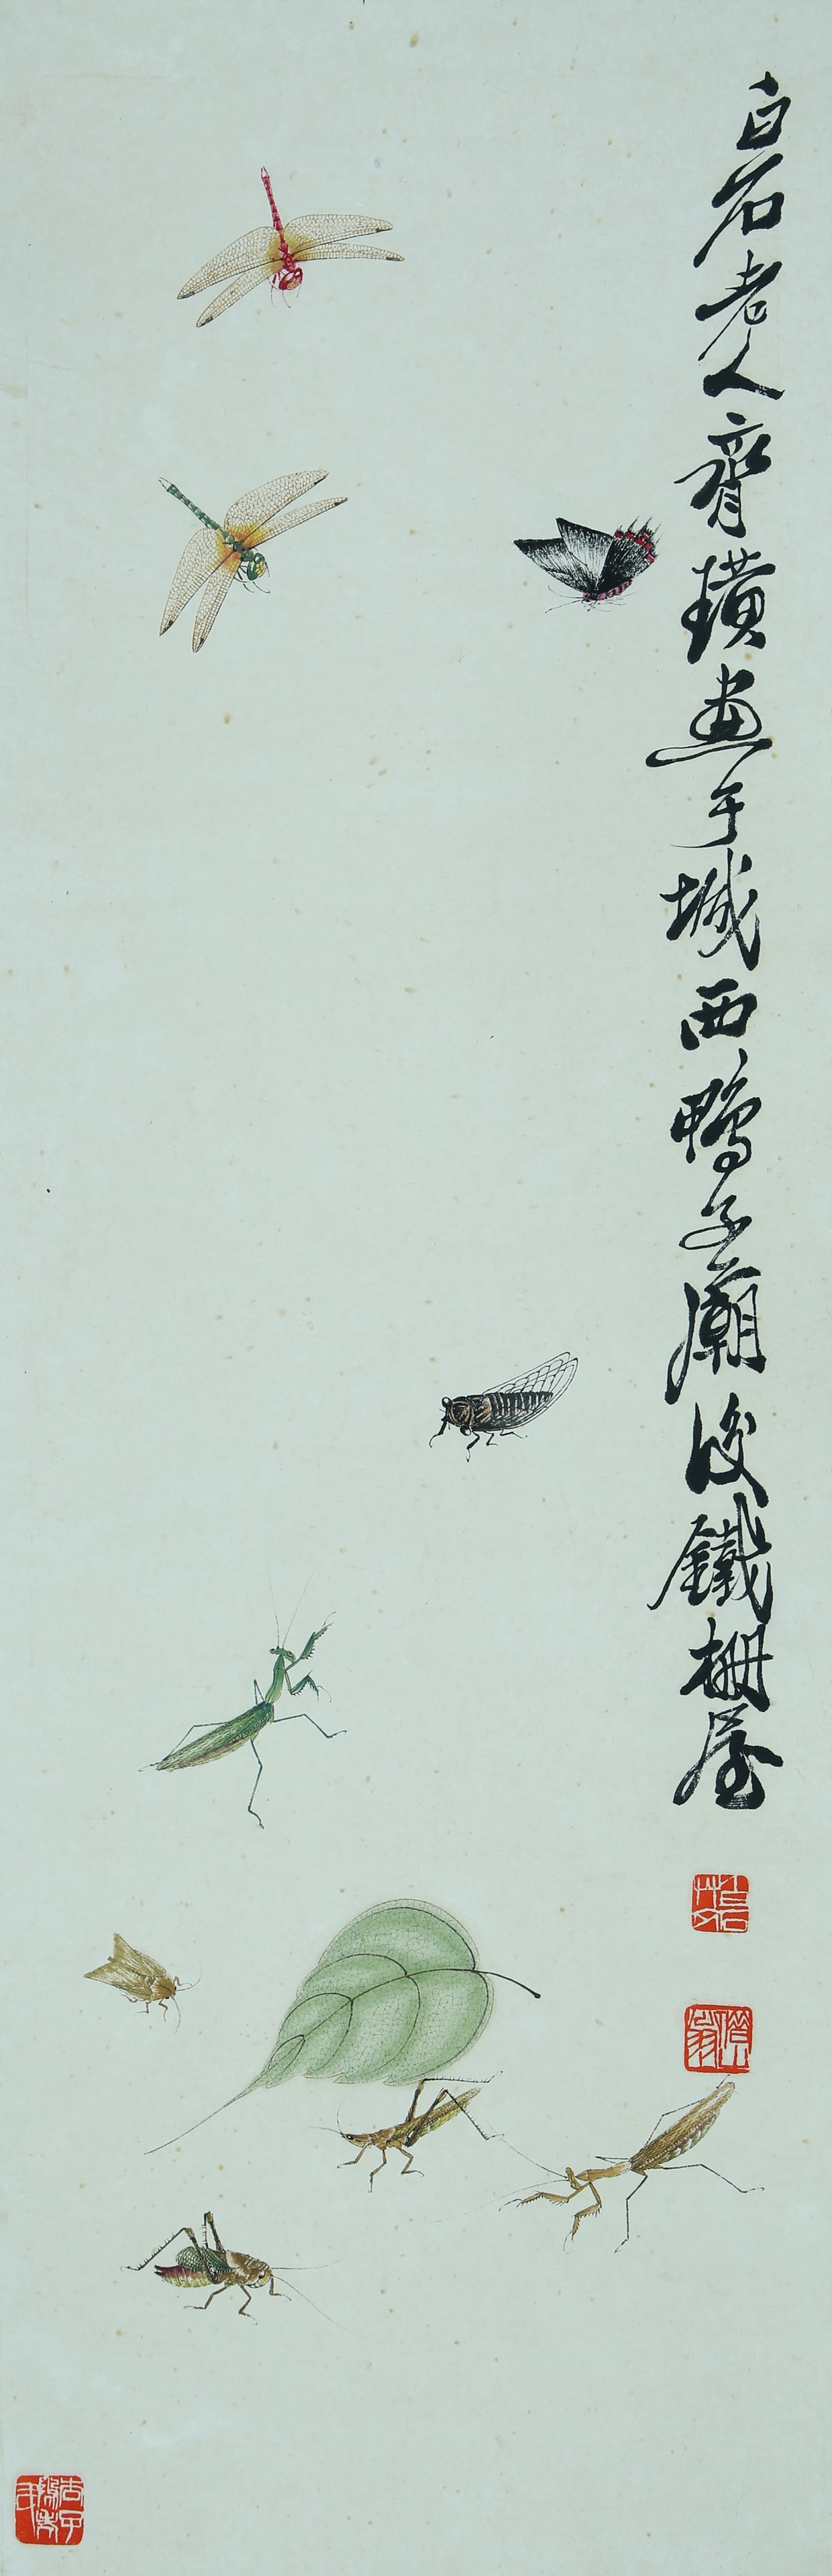 白石老人齊璜画于城西鴨子廟後鐵柵屋